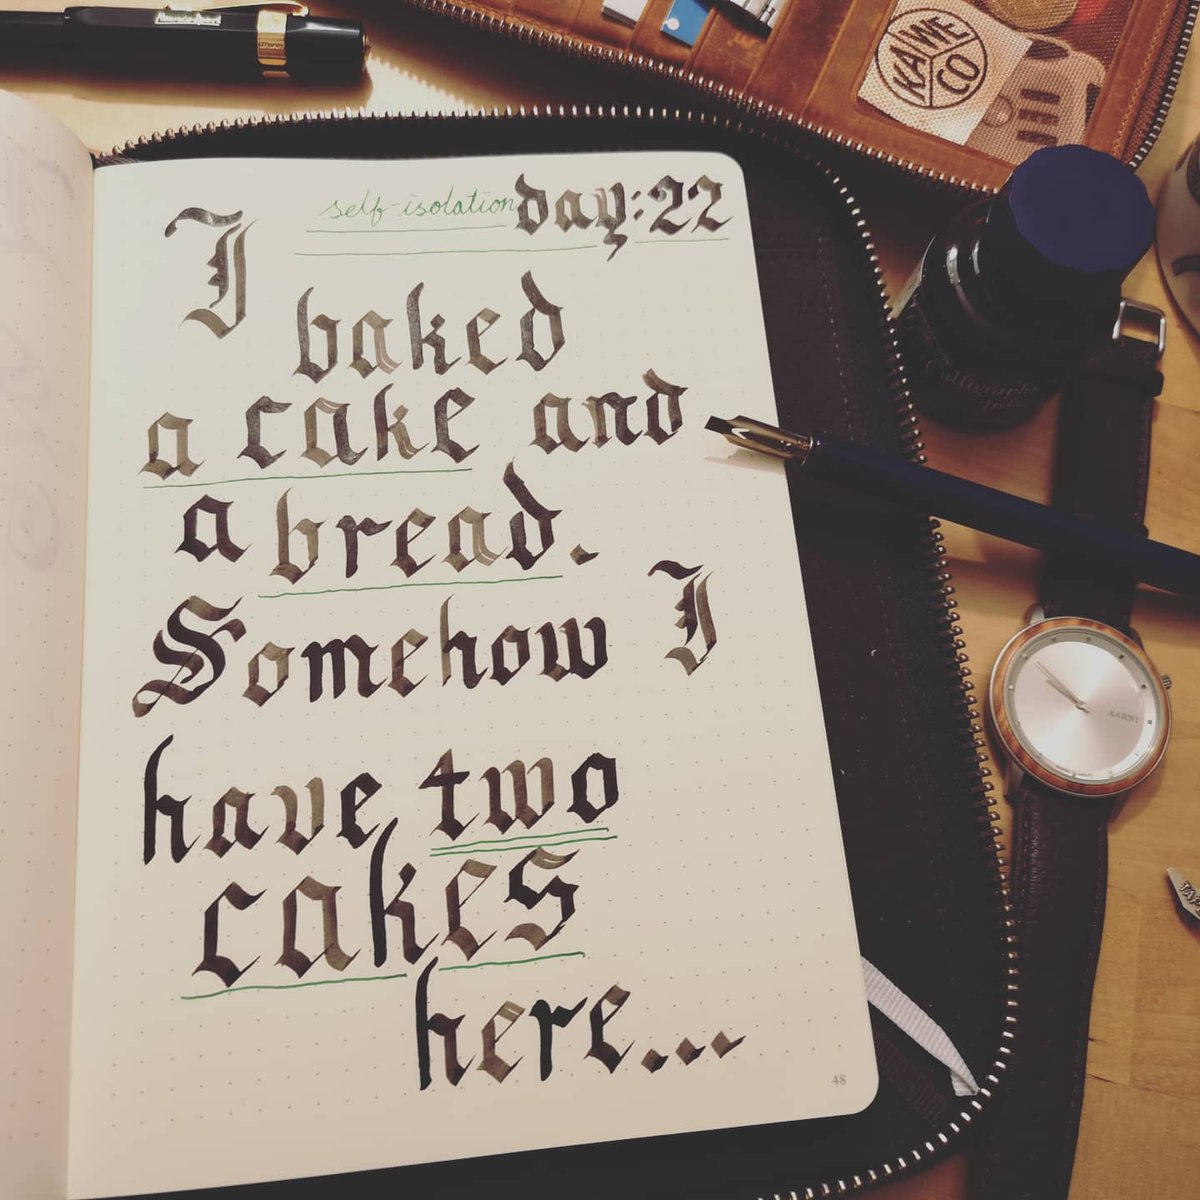 KAWECO
self-isolation day:22
I
baked
a cake and
a bread.
Somehow I
have two
cakes
here...
48
Calligraphy
Ink
AARNI